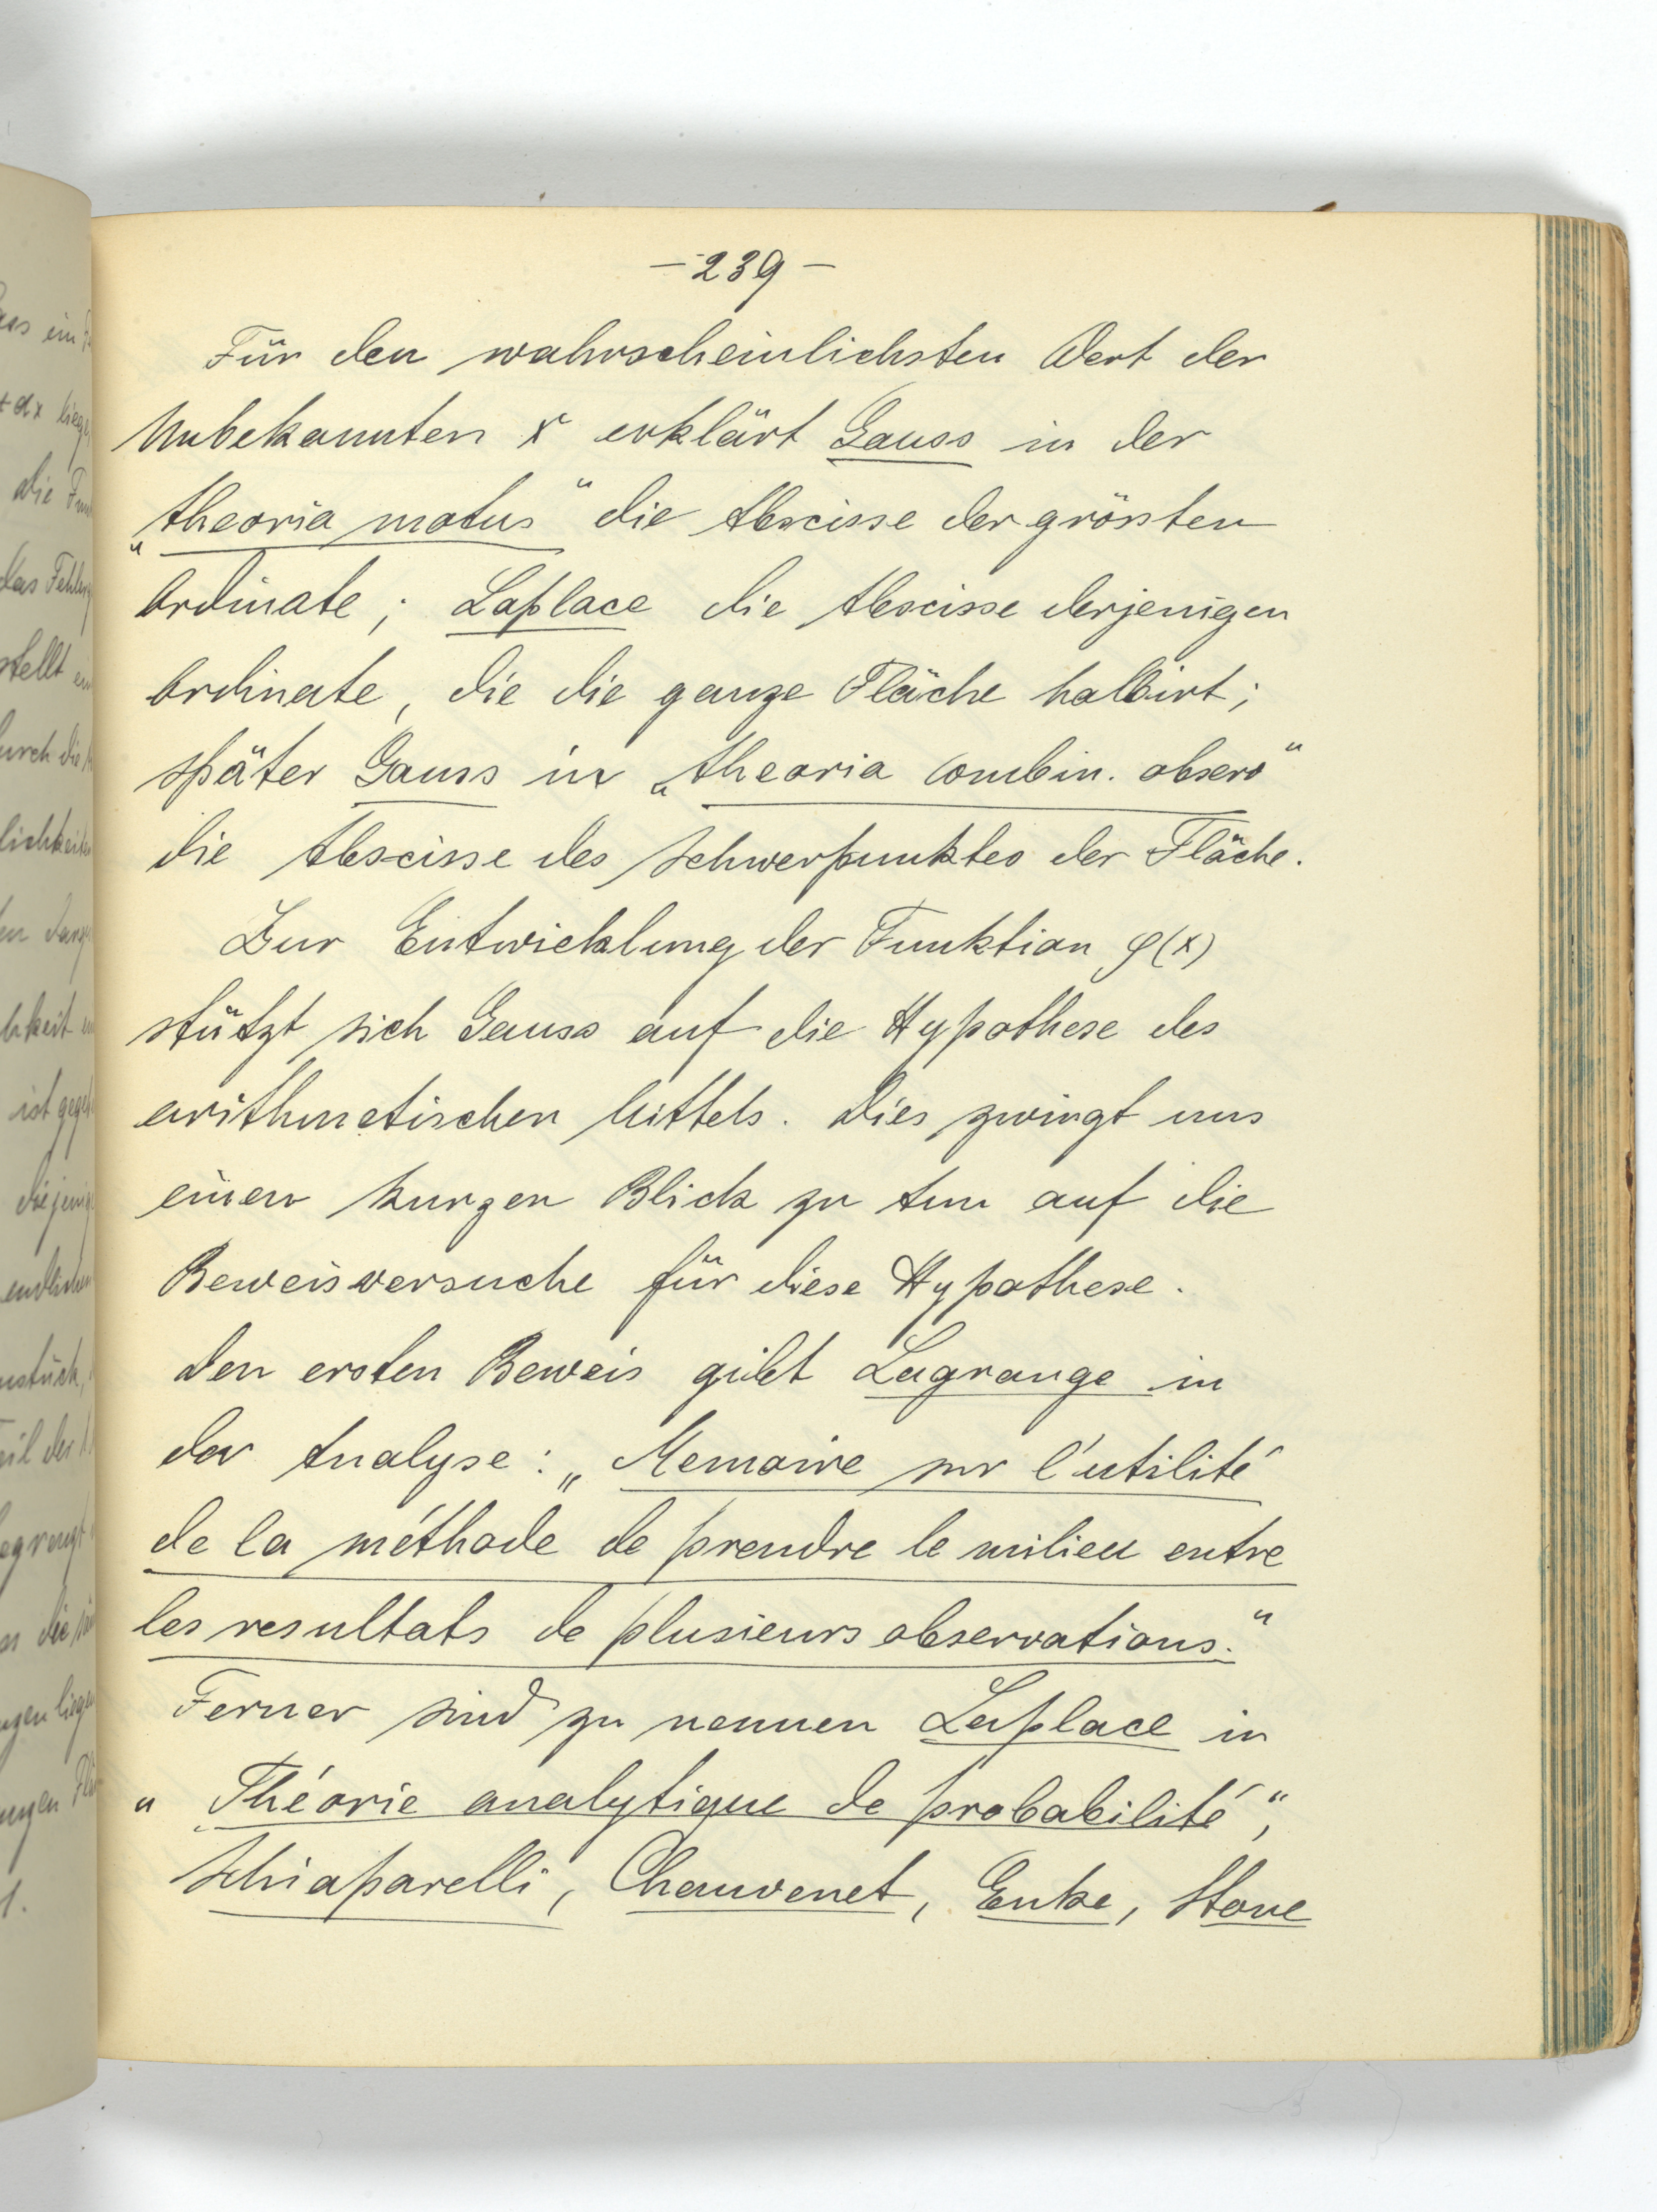 - 239 -
Für den wahrscheinlichsten Wert der
Unbekannten x erklärt Gauss in der
„theoria motus“ die Abscisse der grössten
Ordinate; Laplace die Abscisse derjenigen
Ordinate, die die ganze Fläche halbirt;
später Gauss in „theoria combin. observ“
die Abscisse des Schwerpunktes der Fläche.
Zur Entwicklung der Funktion φ(x)
stützt sich Gauss auf die Hypothese des
arithmetischen Mittels. Dies zwingt uns
einen kurzen Blick zu tun auf die
Beweisversuche für diese Hypothese.
Den ersten Beweis gibt Lagrange in
der Analyse: „Memoire sur l'utilité
de la méthode de prendre le milieu entre
les resultats de plusieurs observations.“
Ferner sind zu nennen Laplace in
„Théorie analytique de probabilité“,
Schiaparelli, Chauvenet, Enke, Stone